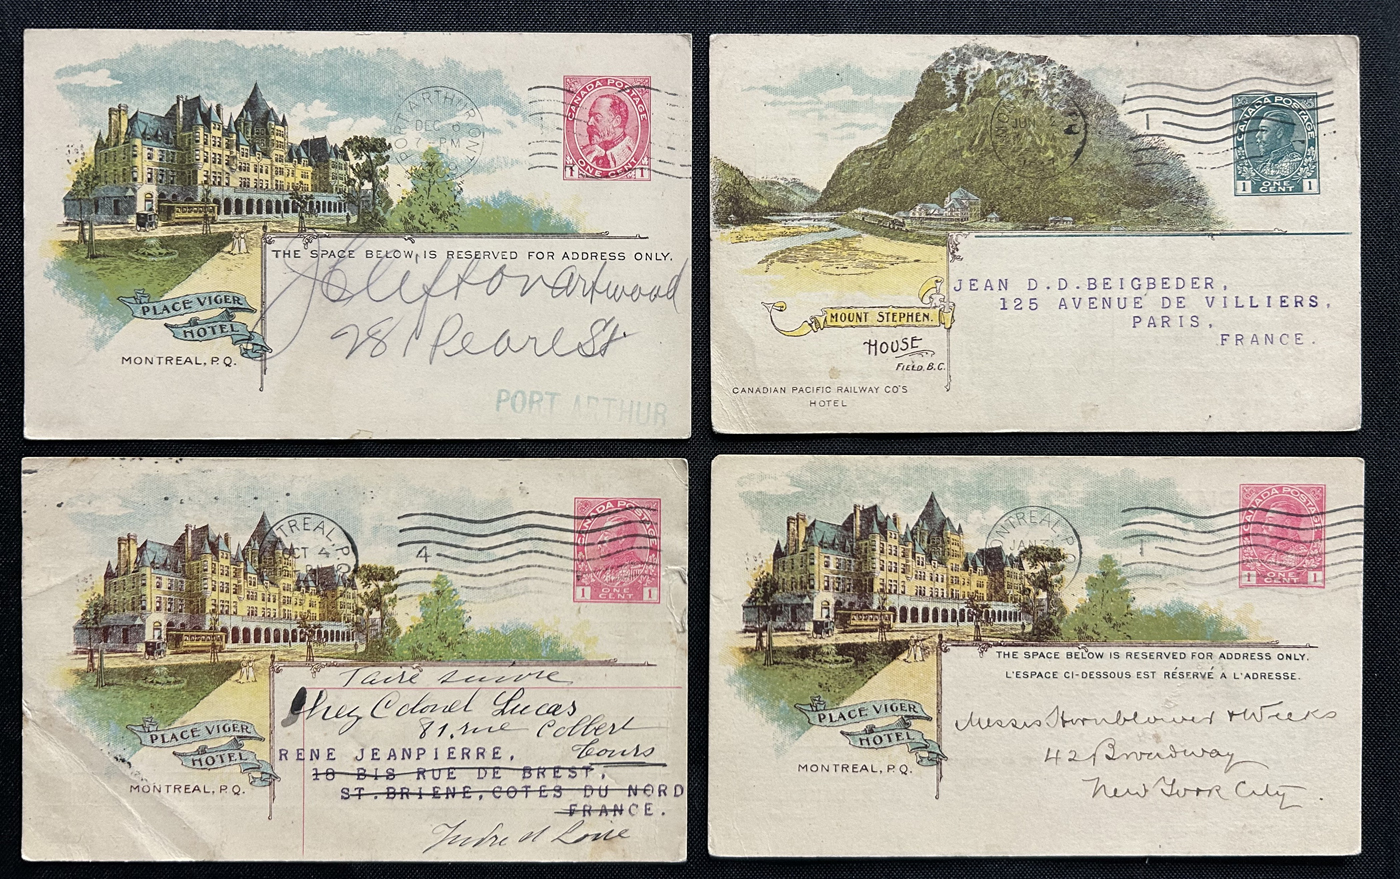 PORT ARTHUR ONT
DEC 6
7 - PM
CANADA POSTAGE
ONE CENT
1 1
THE SPACE BELOW IS RESERVED FOR ADDRESS ONLY.
J Clifton Artwood
28 Pearl St
PLACE VIGER
HOTEL
MONTREAL, P.Q.
PORT ARTHUR
CANADA POSTAGE
1 ONE CENT 1
JEAN D.D.BEIGBEDER,
125 AVENUE DE VILLIERS,
PARIS,
FRANCE.
MOUNT STEPHEN.
HOUSE
FIELD, B.C.
CANADIAN PACIFIC RAILWAY CO'S
HOTEL
MONTREAL, P.Q.
OCT 4
4
CANADA POSTAGE
1 ONE CENT 1
Faire suivre
Chez Colonel Lucas
81, rue Colbert
Tours
RENE JEANPIERRE,
18 BIS RUE DE BREST,
ST.BRIENE,COTES DU NORD
FRANCE.
Indre et Loire
PLACE VIGER
HOTEL
MONTREAL, P.Q.
MONTREAL, P.Q.
JAN
CANADA POSTAGE
1 ONE CENT 1
THE SPACE BELOW IS RESERVED FOR ADDRESS ONLY.
L'ESPACE CI-DESSOUS EST RÉSERVÉ À L'ADRESSE.
Messrs Hornblower & Weeks
42 Broadway
New York City.
PLACE VIGER
HOTEL
MONTREAL, P.Q.